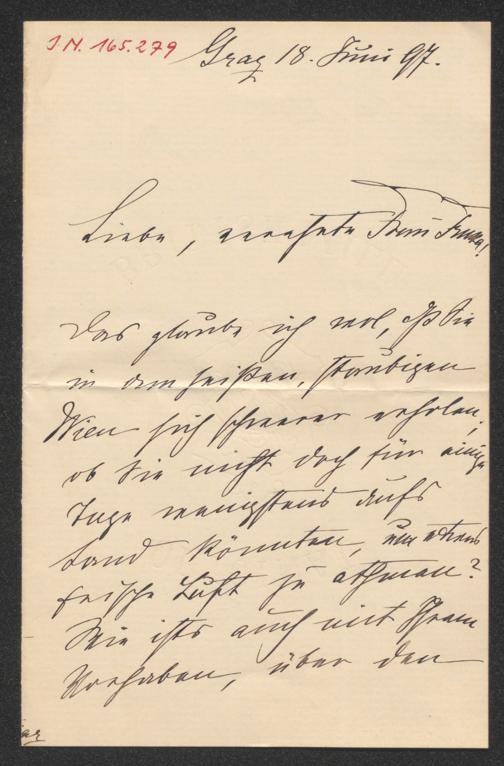 J.N. 165.279
Graz 18. Juni 97.
Liebe, verehrte Frau Emma!
Das glaube ich wol, daß Sie
in dem heißen, staubigen
Wien sich schwerer erholen;
ob Sie nicht doch für einige
Tage wenigstens aufs
Land könnten, um etwas
frische Luft zu athmen?
Wie ists auch mit Ihrem
Vorhaben, über den